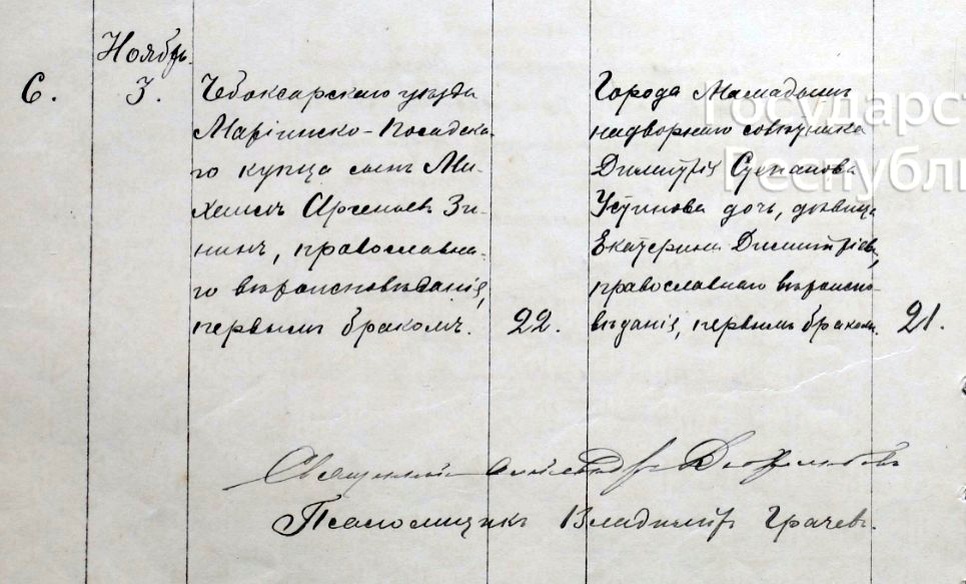 Ноябрь
6.
3.
Чебоксарскаго уѣзда
Маріинско-Посадска-
го купца сынъ Ми-
хаилъ Арсеньевъ Зи-
нинъ, православна-
го вѣроисповѣданія,
первымъ бракомъ.
22.
Города Мамадышъ
надворнаго совѣтника
Димитрія Степанова
Устинова дочь, дѣвица
Екатерина Димитріева,
православнаго вѣроиспо-
вѣданія, первымъ бракомъ.
21.
Государст
Республи
Священникъ
Псаломщикъ Владимиръ Грачевъ.